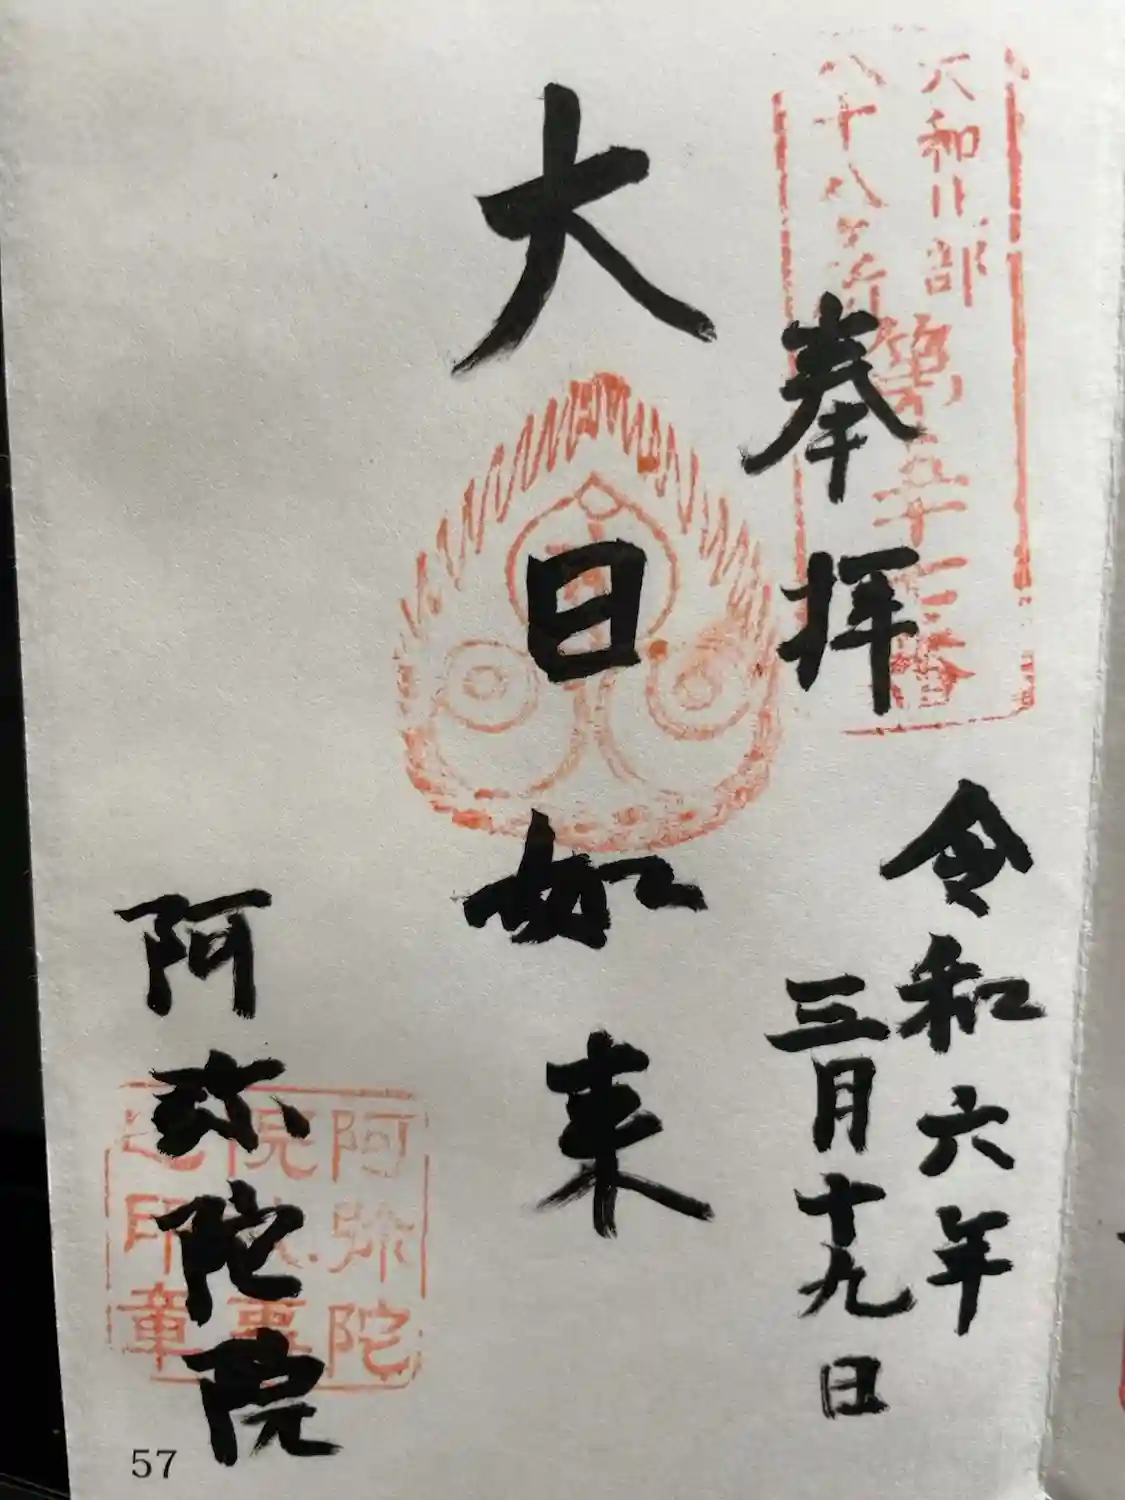 大和北部
八十八ヶ所
第五十七番
奉拝
令和六年
三月十九日
大日如来
阿弥陀院
阿弥陀
院
之印章
57